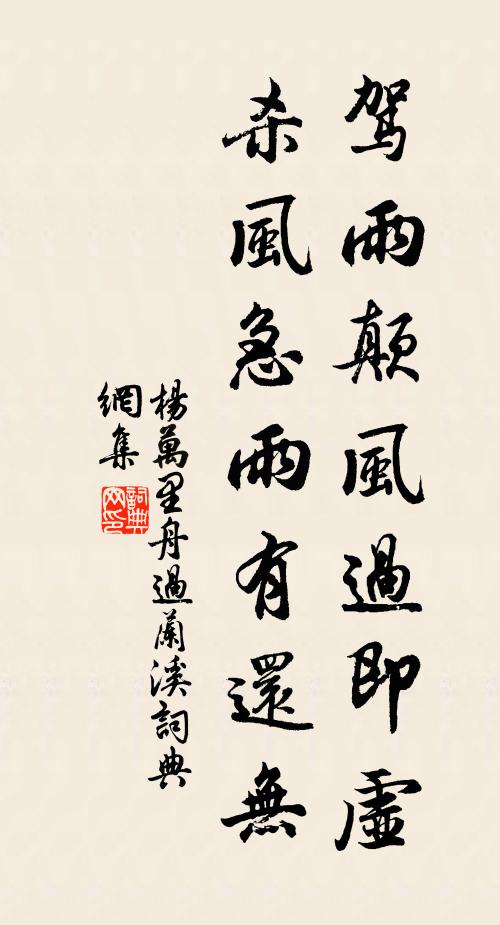 駕雨顛風過即虛
杀風急雨有還無
楊萬里舟過蘭溪詞典
網集
詞典
网印